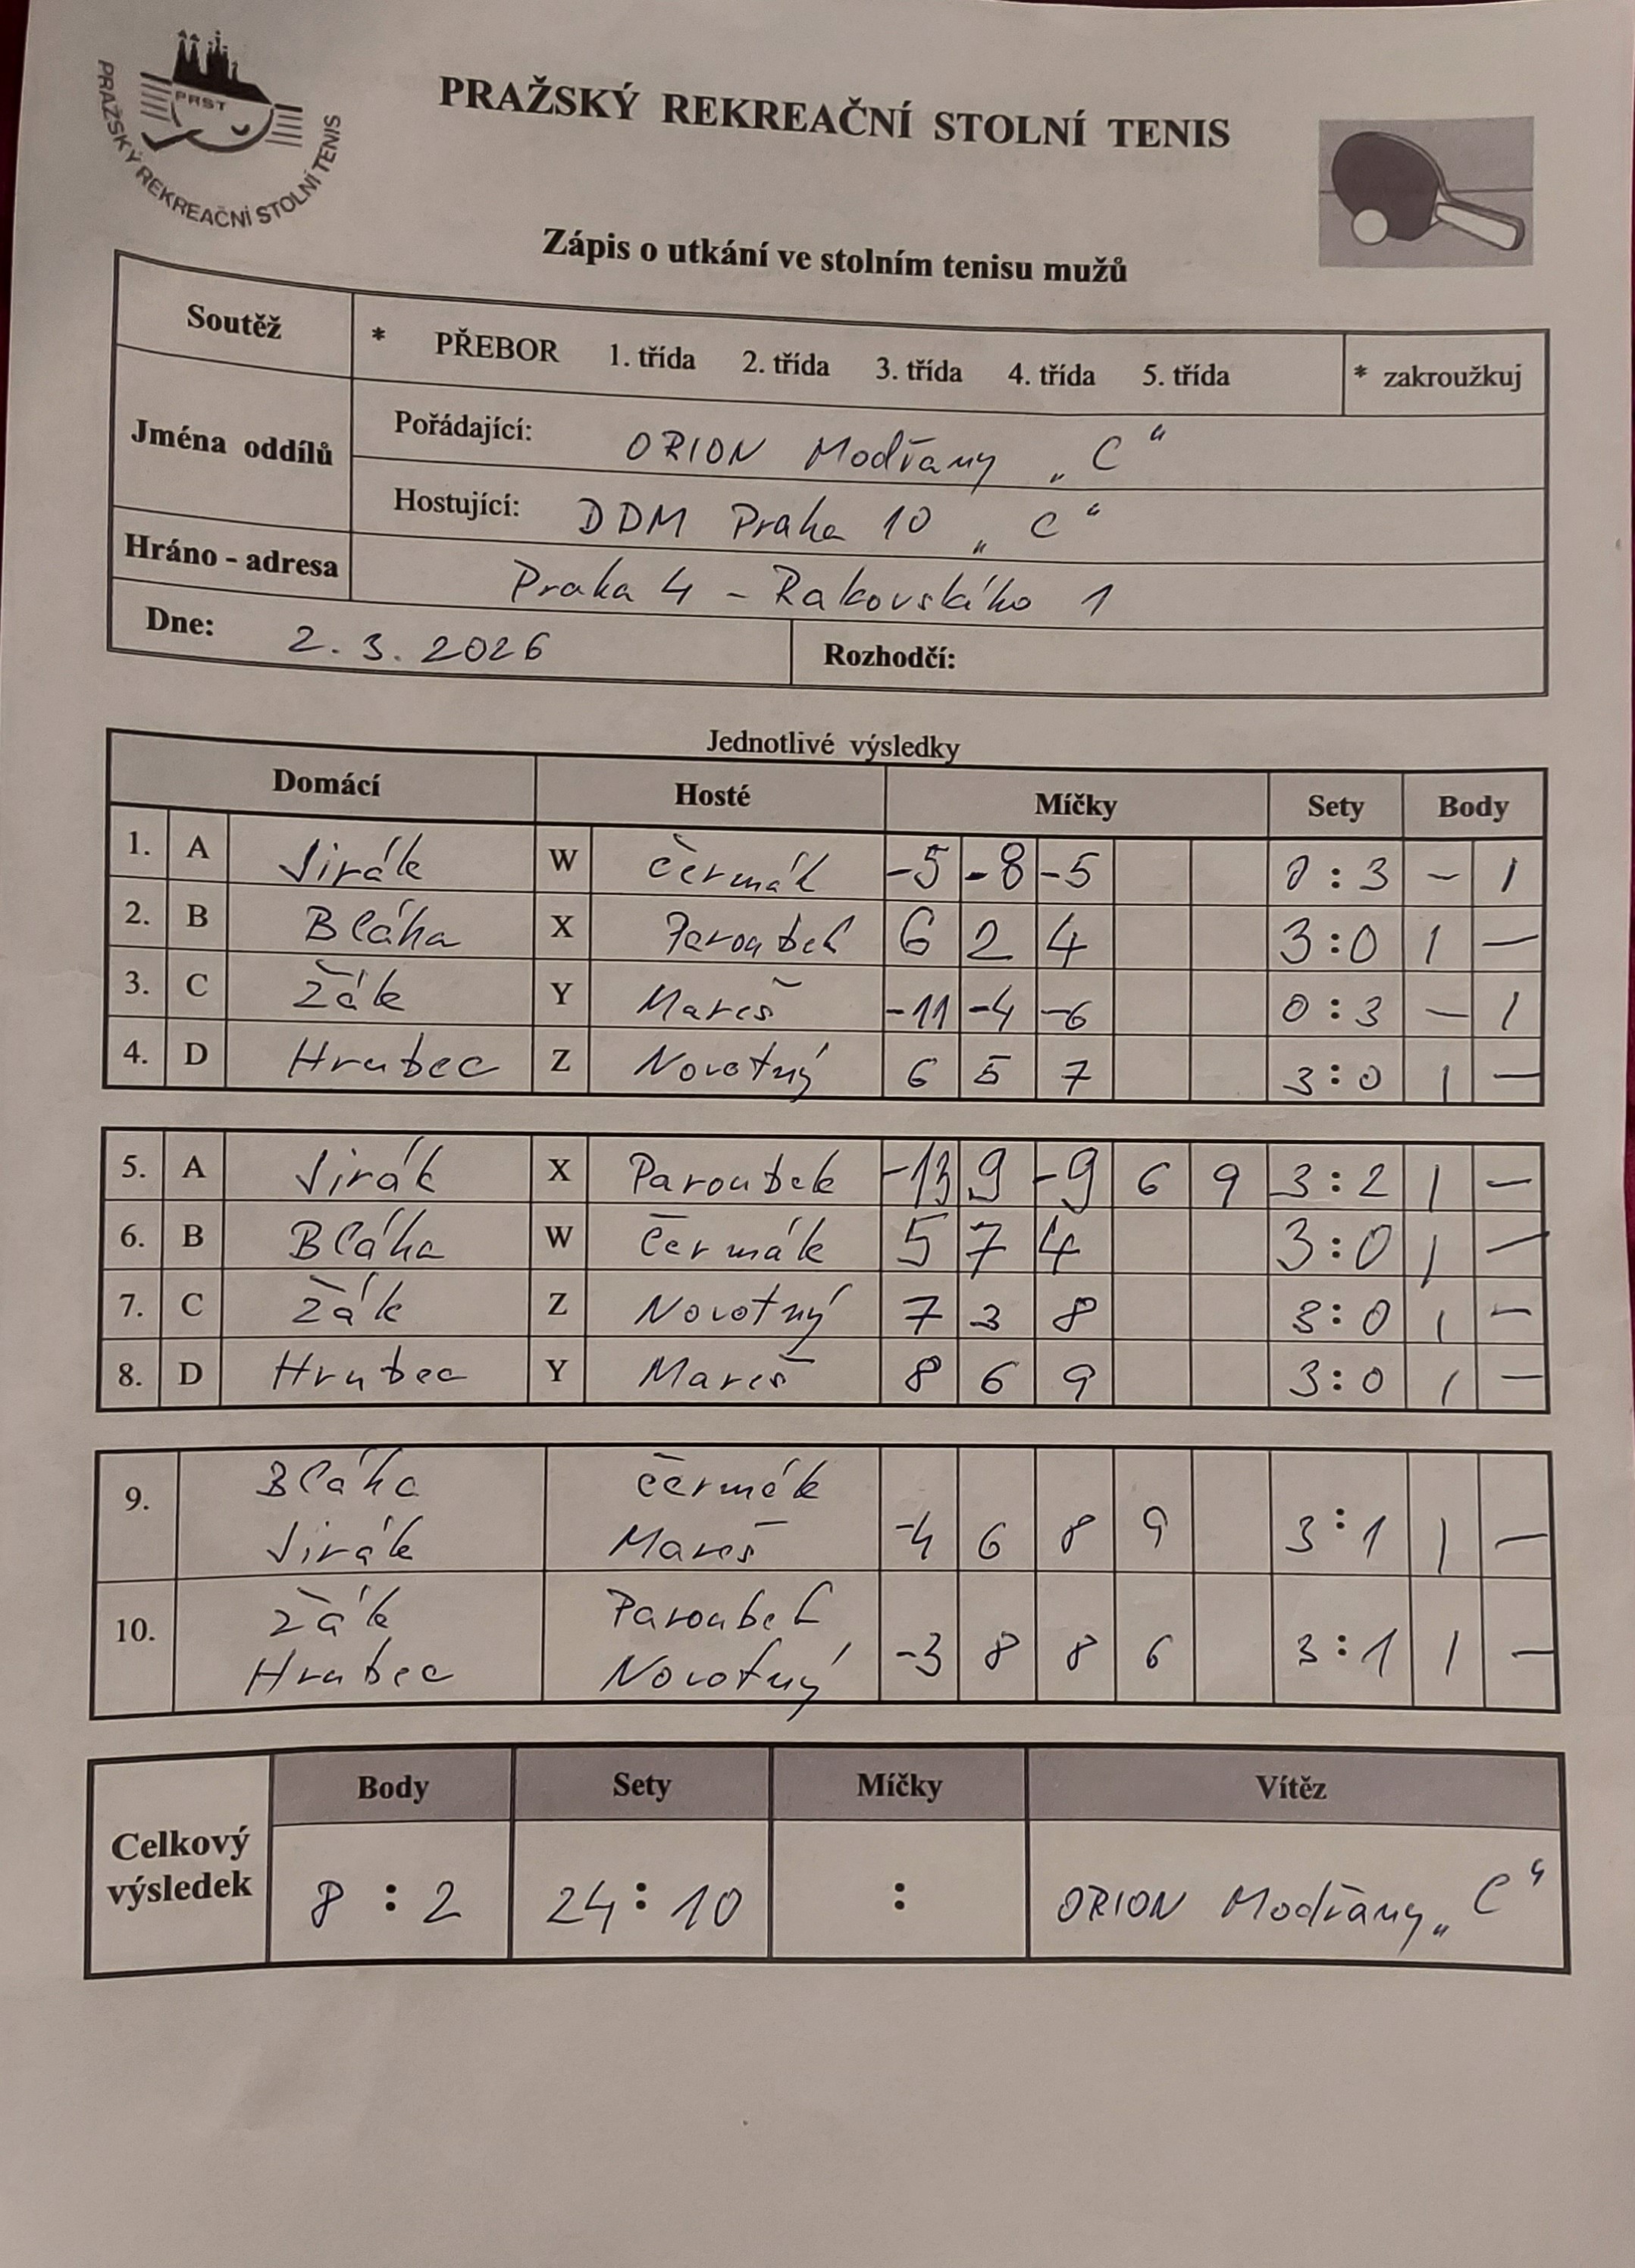 PRST
PRAŽSKÝ REKREAČNÍ STOLNÍ TENIS
PRAŽSKÝ REKREAČNÍ STOLNÍ TENIS
Zápis o utkání ve stolním tenisu mužů
Soutěž * PŘEBOR 1. třída 2. třída 3. třída 4. třída 5. třída * zakroužkuj
Jména oddílů
Pořádající: ORION Modřany „C“
Hostující: DDM Praha 10 „C“
Hráno - adresa Praha 4 - Rakovského 1
Dne: 2. 3. 2026 Rozhodčí:
Jednotlivé výsledky
Domácí Hosté Míčky Sety Body
1. A Jirák W Čermák -5 -8 -5 0 : 3 - 1
2. B Bláha X Paroubek 6 2 4 3 : 0 1 -
3. C Žák Y Mareš -11 -4 -6 0 : 3 - 1
4. D Hrubec Z Novotný 6 5 7 3 : 0 1 -
5. A Jirák X Paroubek -13 9 -9 6 9 3 : 2 1 -
6. B Bláha W Čermák 5 7 4 3 : 0 1 -
7. C Žák Z Novotný 7 3 8 3 : 0 1 -
8. D Hrubec Y Mareš 8 6 9 3 : 0 1 -
9. Bláha Čermák
Jirák Mareš -4 6 8 9 3 : 1 1 -
10. Žák Paroubek
Hrubec Novotný -3 8 8 6 3 : 1 1 -
Celkový výsledek
Body Sety Míčky Vítěz
8 : 2 24 : 10 : ORION Modřany „C“